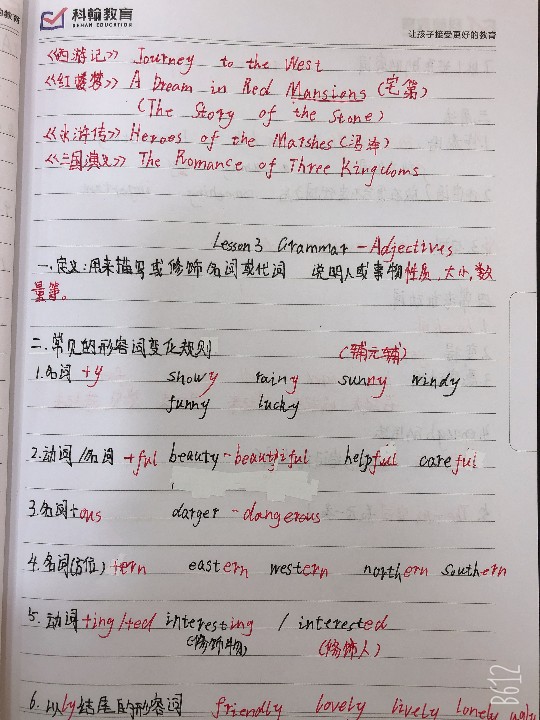 科翰教育
KEHAN EDUCATION
让孩子接受更好的教育
《西游记》 Journey to the West
《红楼梦》 A Dream in Red Mansions (宅第)
(The Story of the Stone)
《水浒传》 Heroes of the Marshes (沼泽)
《三国演义》 The Romance of Three Kingdoms
Lesson 3 Grammar - Adjectives
一.定义:用来描写或修饰名词或代词 说明人或事物性质,大小,数
量等。
二.常见的形容词变化规则 (辅元辅)
1.名词 +y showy rainy sunny windy
funny lucky
2.动词/名词 +ful beauty - beautiful helpful careful
3.名词+ous danger - dangerous
4.名词(方位) +ern eastern western northern southern
5.动词 +ing/+ed interesting / interested
(修饰物) (修饰人)
6.以ly结尾的形容词 friendly lovely lively lonely ugly
B612